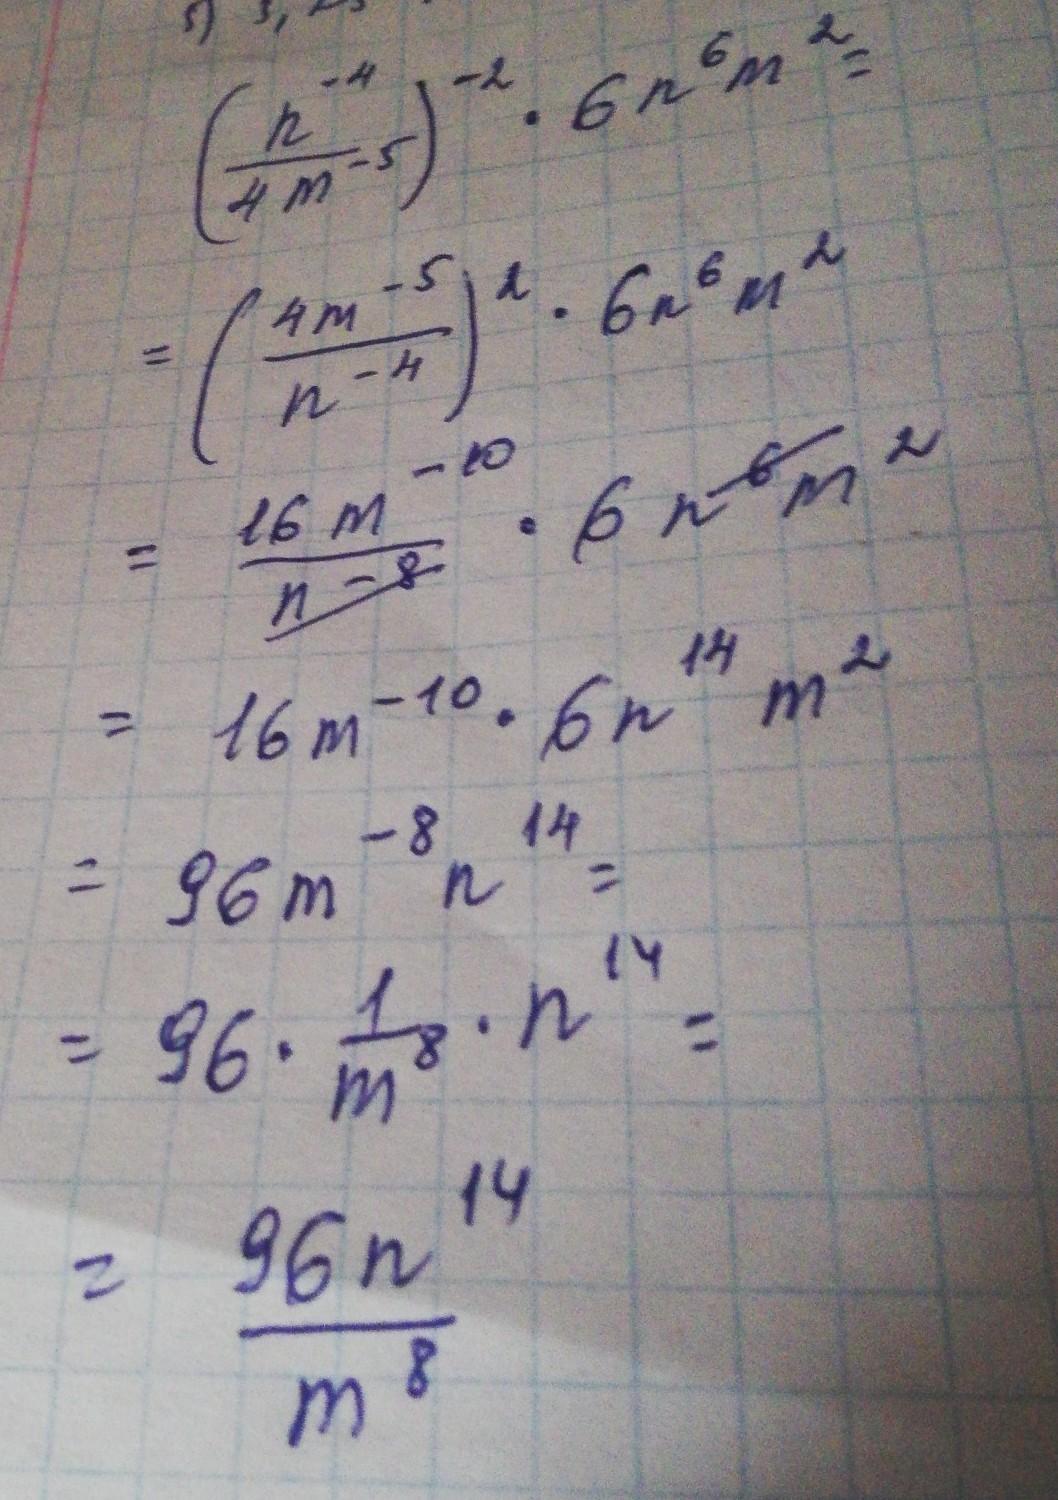 (n⁻⁴/4m⁻⁵)⁻² · 6n⁶m² =
= (4m⁻⁵/n⁻⁴)² · 6n⁶m²
= 16m⁻¹⁰/n⁻⁸ · 6n⁶m²
= 16m⁻¹⁰ · 6n¹⁴m²
= 96m⁻⁸n¹⁴ =
= 96 · 1/m⁸ · n¹⁴ =
= 96n¹⁴/m⁸